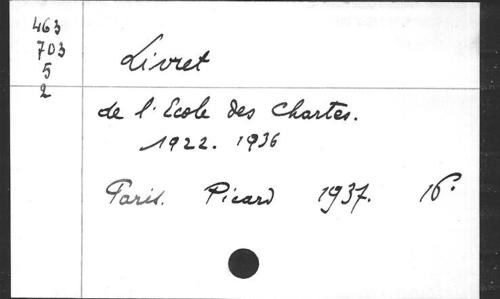 463
703
5
2
Livret
de l'Ecole des Chartes.
1922. 1936
Paris. Picard 1937. 16°